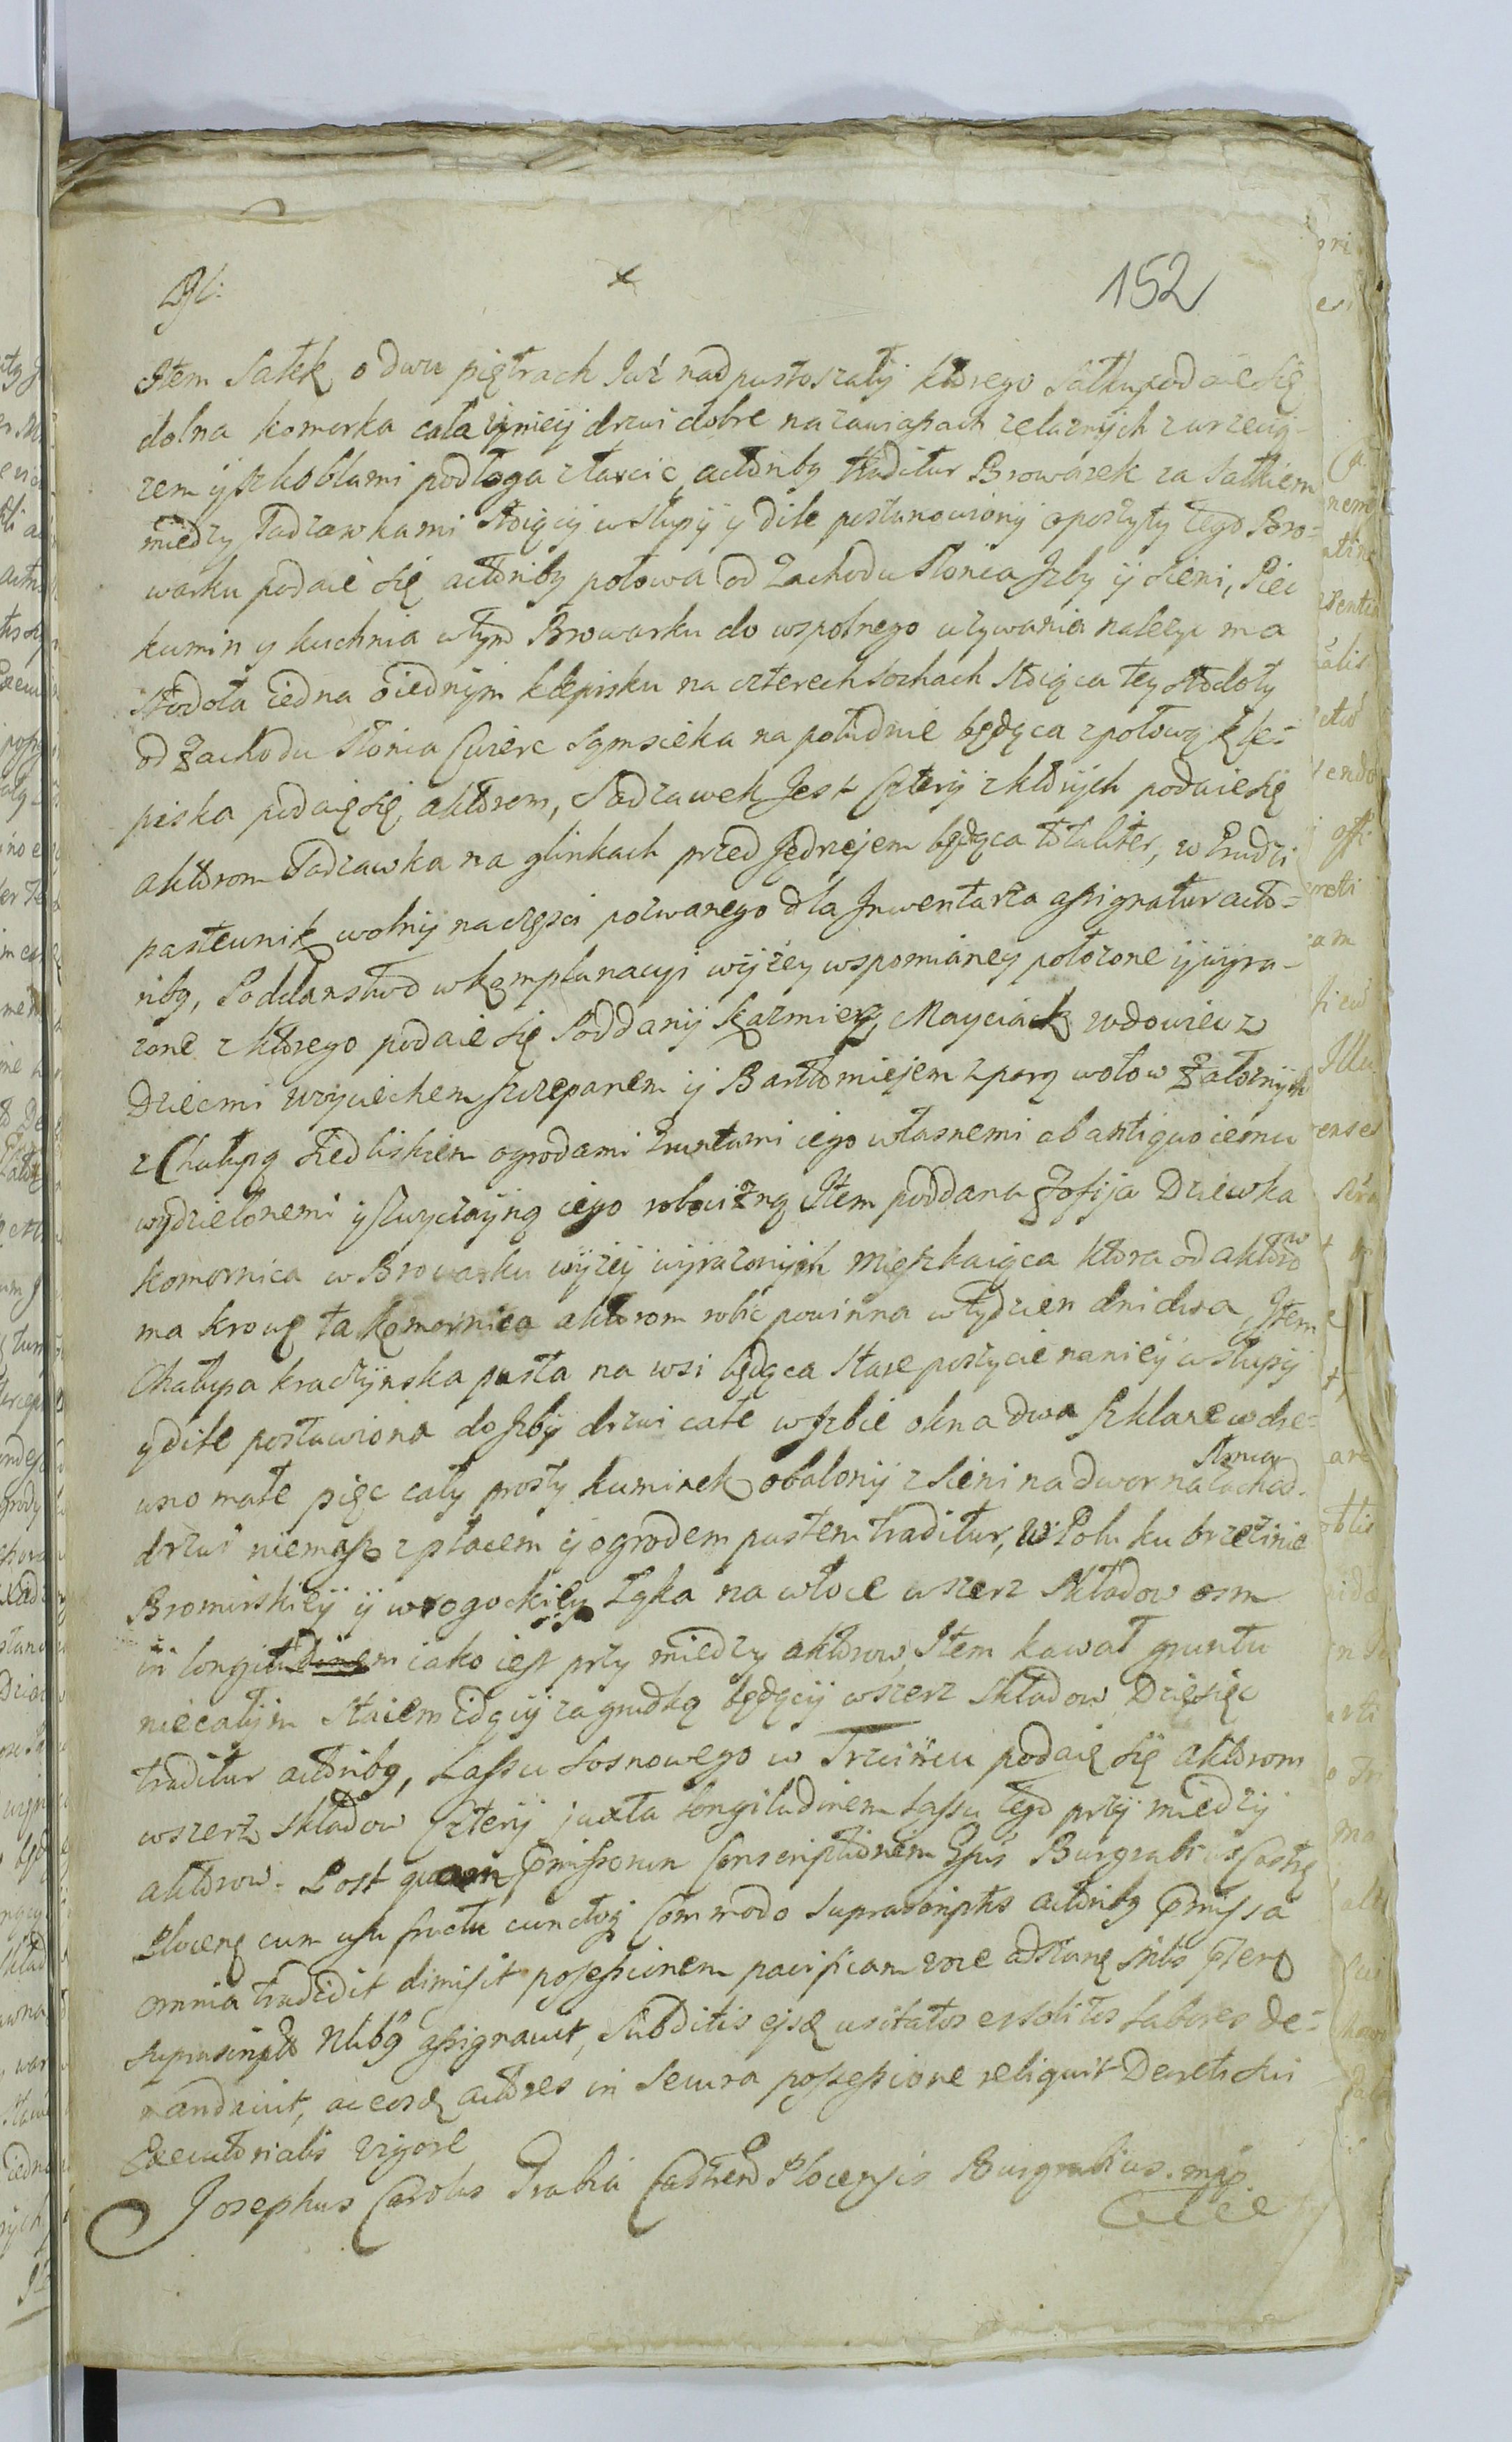 152
Item Sałek o dwu piętrach Już nadpustoszały ktorego Sałku podaie się
dolna komorka cała y uniey drzwi dobre na zawiasach zelaznych z wrzecią-
zem y szkoblami podłoga z tarcic actoribg traditur Browarek za Sałkiem
między Sadzawkami stoiący w słupy y dile postanowiony o poszyty tego Bro-
warku podaie się actoribg połowa od Zachodu Słonca Izby y Sieni, Piec
kumin y kuchnia w tym Browarku do wspolnego uzywania nalezyc ma
Stodoła iedna o iednym klepisku na czterech sochach stoiąca tey stodoły
od Zachodu Słonca Cwierc Sąmsieka na południe będąca z połową kle=
piska podaie się aktorom, Sadzawek Jest Cztery z ktorych podaie się
aktorom Sadzawka na glinkach przed Jędrzejem będąca totaliter, w Grudzi
pastewnik wolny na częsci pozwanego dla Inwentarza assignatur acto=
ribg, Poddanstwo w komplanacyi wyzey wspomianey położone y wyra-
zone z ktorego podaie się Poddany Kazmierz Mayciack wdowiec z
Dziecmi Woyciechem Szczepanem y Bartłomiejem z parą wołow Załoznych
z Chałupą Siedliskiem ogrodami Gruntami iego własnemi ab antiquo iemu
wydzielonemi y Zwyczayną iego robocizną Item poddana Zofija Dziewka
komornica w Browarku wyzey wyrazonych mięszkaiąca ktora od aktorow
ma krowę ta komornica aktorom robic powinna w tydzien dni dwa, Item
Chałupa kraczynska pusta na wsi będąca Stare poszycie na niey w słupy
y dile postawiona do Izby drzwi całe w Izbie okna dwa szklane w drze=
wno małe piec cały prosty kuminek obalony z Sieni na dwor na Zachod Słonca
drzwi niemasz z placem y ogrodem pustem traditur, W Polu ku brzezinie
Bromirskiey y wrogockiey Łąka na włoce wszerz Składow osm
in longitudinem iako iest przy miedzy aktorow, Item kawał gruntu
niecałym staiem idący za grudką będący wszerz Składow Dziesięc
traditur actoribg, Lassu Sosnowego w Trzcińcu podaie się aktorom
wszerz Składow Cztery juxta longitudinem Lassu tego przy miedzy
aktorow. Post quam Pmissorum Conscriptionem Gsus Burgrabius Castr
Plocens cum usu fructu cunctoq Commodo Suprascriptis actoribg Pmissa
omnia tradidit dimisit possessionem pacificam
suprascriptis Nlibg assignavit, Subditis ejsq usitatos et solitos Labores de=
mandavit, ac eosq actores in Secura possessione reliquit Decreti Sui
Executorialis Vigore
Josephus Carolus Grabia Castren Plocensis Burgrabius. mp